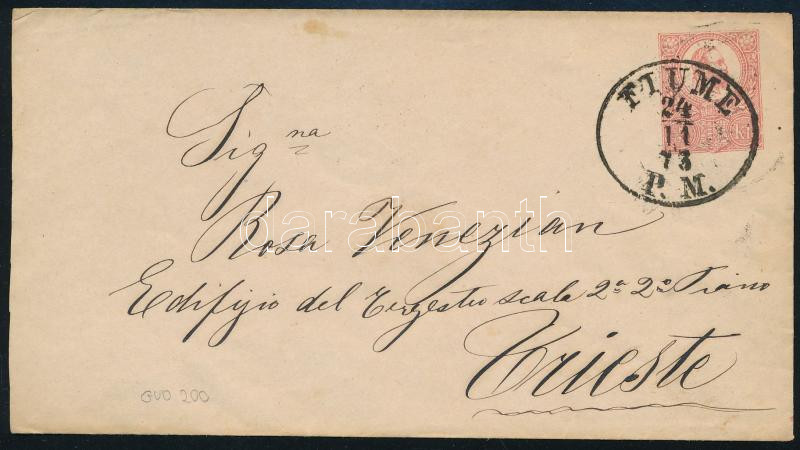 FIUME
24
11
73
P. M.
kr
Sig na
Rosa Venezian
Edifizio del Tergestro scala 2a 2o Piano
Trieste
darabanth
GUD 200